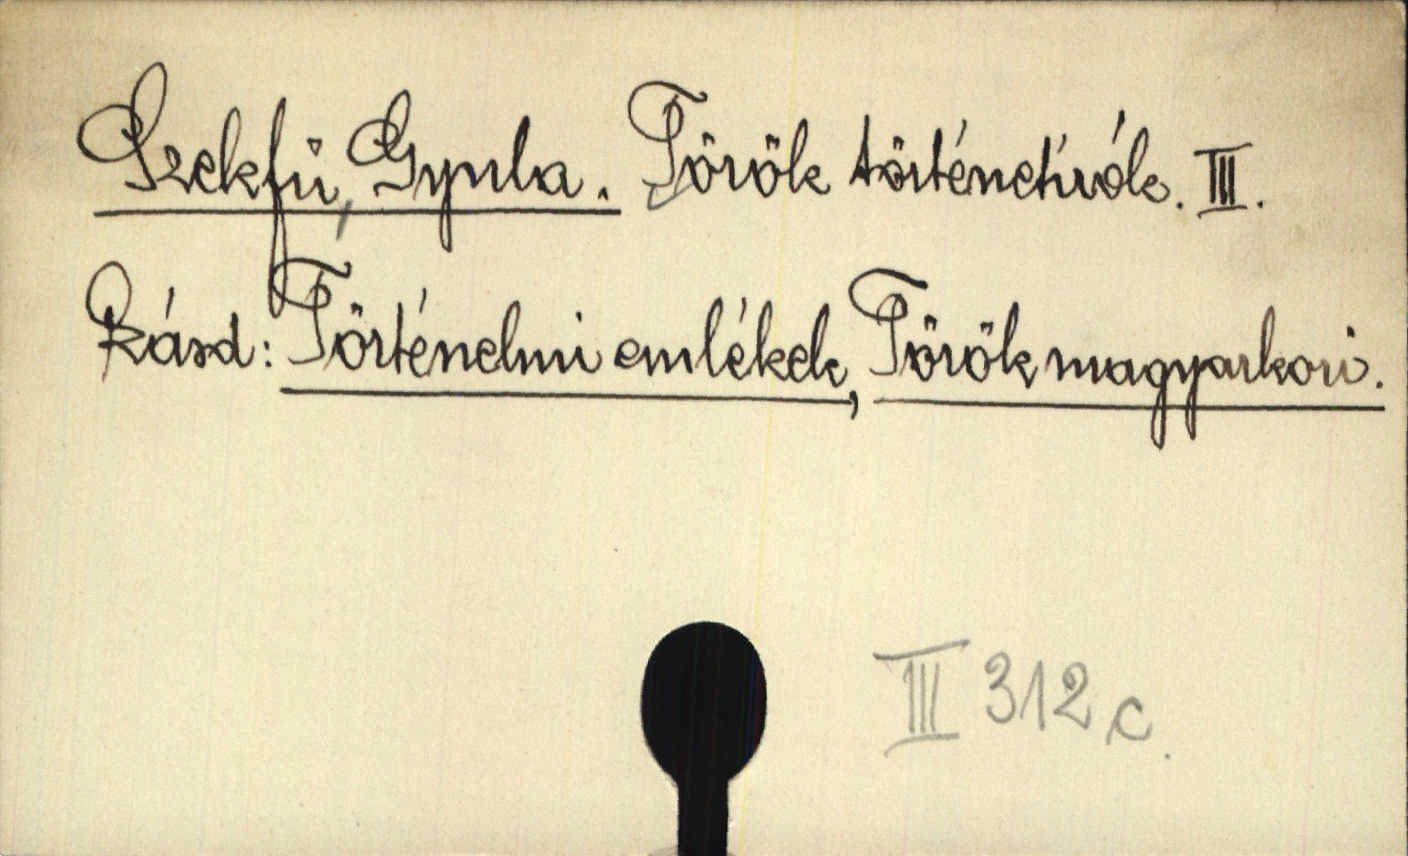 Szekfü, Gyula. Török történetírók. III.
Rásd: Történelmi emlékek, Török magyarkori.
III 312 c.